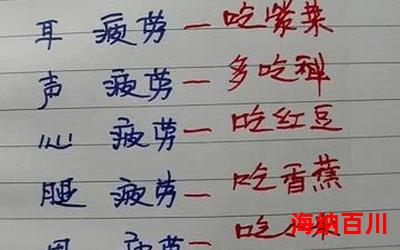 耳 疲劳 — 吃紫菜
声 疲劳 — 多吃科
心 疲劳 — 吃红豆
腿 疲劳 — 吃香蕉
疲劳 — 吃
海纳百川